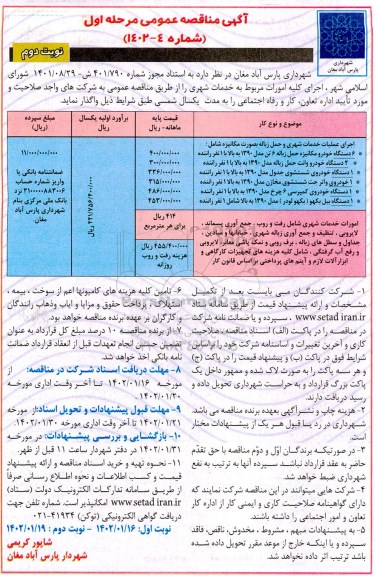 آگهی مناقصه عمومی مرحله اول
(شماره ۴-۱۴۰۲)
نوبت دوم
شهرداری
پارس آباد مغان
شهرداری پارس آباد مغان در نظر دارد به استناد مجوز شماره ۴۰۱/۷۹۰ ش- ۱۴۰۱/۰۸/۲۹ شورای
اسلامی شهر، اجرای کلیه امورات مربوط به خدمات شهری را از طریق مناقصه عمومی به شرکت های واجد صلاحیت و
مورد تأیید اداره تعاون، کار و رفاه اجتماعی را به مدت یکسال شمسی طبق شرایط ذیل واگذار نماید.
موضوع و نوع کار
مبلغ پایه
ماهانه - ریال
برآورد اولیه یکسال
ریال
مبلغ سپرده
(ریال)
اجرای عملیات خدمات شهری و حمل زباله بصورت مکانیزه شامل:
۶ دستگاه خودرو مکانیزه حمل زباله ۶ تن مدل ۱۳۹۰ به بالا با ۱ نفر راننده
۲ دستگاه خودرو وانت حمل زباله مدل ۱۳۹۰ به بالا با ۱ نفر راننده
۱ دستگاه خودروی شستشوی جدول مدل ۱۳۹۰ به بالا با ۱ نفر راننده
۱ دستگاه خودروی کمپرسی ۶ چرخ مدل ۱۳۹۰ به بالا با ۱ نفر راننده
۴۰۰/۰۰۰/۰۰۰
۳۰۰/۰۰۰/۰۰۰
۳۳۶/۰۰۰/۰۰۰
۳۱۵/۰۰۰/۰۰۰
۱۱/۰۰۰/۰۰۰/۰۰۰
ضمانتنامه بانکی یا
واریز شماره حساب
۳۱۰۰۰۰۰۸۸۳۰۰۶ نزد
بانک ملی مرکزی بنام
شهرداری پارس آباد
مغان
امورات خدمات شهری شامل رفت و روب، جمع آوری پسماند،
لایروبی، تنظیف و جمع آوری زباله شهری، خیابانها و میادین
جداول و سطل های زباله، برف روبی و نمک پاشی معابر، لایروبی
و رفع آب گرفتگی، شامل کلیه هزینه های تجهیزات کارگاهی و
ابزارآلات لازم و آیتم های پرداختی براساس قانون کار
۴۱۴ ریال
برای هر مترمربع
هزینه رفت و روب
روزانه
۱- شرکت کنندگان می بایست بعد از تکمیل
مشخصات و ارائه پیشنهاد قیمت از طریق سامانه ستاد
www.setad iran.ir، سپرده و یا ضمانت نامه شرکت
در مناقصه را در پاکت (الف) اسناد مناقصه، صلاحیت
کاری و آخرین تغییرات و اساسنامه شرکت خود را براساس
شرایط فوق در پاکت (ب) و پیشنهاد قیمت را در پاکت (ج)
و هر سه پاکت را به صورت لاک شده و ممهور داخل یک
پاکت بزرگ قرارداد و به حراست شهرداری تحویل داده و
رسید دریافت دارند.
۲- هزینه چاپ و نشر آگهی بعهده برنده مناقصه می باشد.
شهرداری در رد یا قبول هر یک از پیشنهادات مختار
می باشد.
۳- در صورتیکه برندگان اول و دوم مناقصه با حق تقدّم
حاضر به عقد قرارداد نباشند سپرده آنها به ترتیب به نفع
شهرداری ضبط خواهد شد.
۴- شرکت هایی میتوانند در این مناقصه شرکت نمایند که
دارای گواهینامه صلاحیت کاری و ایمنی کار از اداره کار
تعاون و امور اجتماعی را داشته باشند.
۵- به پیشنهادات مبهم، مشروط، مخدوش، ناقص، فاقد
سپرده و یا اینکه خارج از موعد مقرر تحویل داده شده
باشد ترتیب اثر داده نخواهد شد.
۶- تامین کلیه هزینه های کامیونها اعم از سوخت، بیمه،
استهلاک، پرداخت حقوق و مزایا و ایاب وذهاب رانندگان
و کارگران بر عهده برنده مناقصه خواهد بود.
۷- از برنده مناقصه ۱۰ درصد مبلغ کل قرارداد به عنوان
تضمین حسن انجام تعهدات قبل از انعقاد قرارداد ضمانت
نامه بانکی اخذ خواهد شد.
۸- مهلت دریافت اسناد شرکت در مناقصه: از
مورخه ۱۴۰۲/۰۱/۱۶ تا آخر وقت اداری مورخه
۱۴۰۲/۰۱/۲۰.
۹- مهلت قبول پیشنهادات و تحویل اسناد: از مورخه
۱۴۰۲/۰۱/۲۱ تا آخر وقت اداری مورخه ۱۴۰۲/۰۱/۳۰.
۱۰- بازگشایی و بررسی پیشنهادات: در مورخه
۱۴۰۲/۰۱/۳۱ در دفتر شهردار ساعت ۱۱ قبل از ظهر.
۱۱- نحوه تهیه و خرید اسناد مناقصه و ارائه پیشنهاد
قیمت و کسب اطلاعات و نحوه اطلاع رسانی صرفاً
از طریق سامانه تدارکات الکترونیک دولت (ستاد)
www.setad iran.ir امکانپذیر است. شماره تلفن جهت
دریافت گواهی الکترونیکی (توکن) ۴۱۹۳۴-۰۲۱
نوبت اول: ۱۴۰۲/۰۱/۱۶ - نوبت دوم: ۱۴۰۲/۰۱/۱۹
شاپور کریمی
شهردار پارس آباد مغان